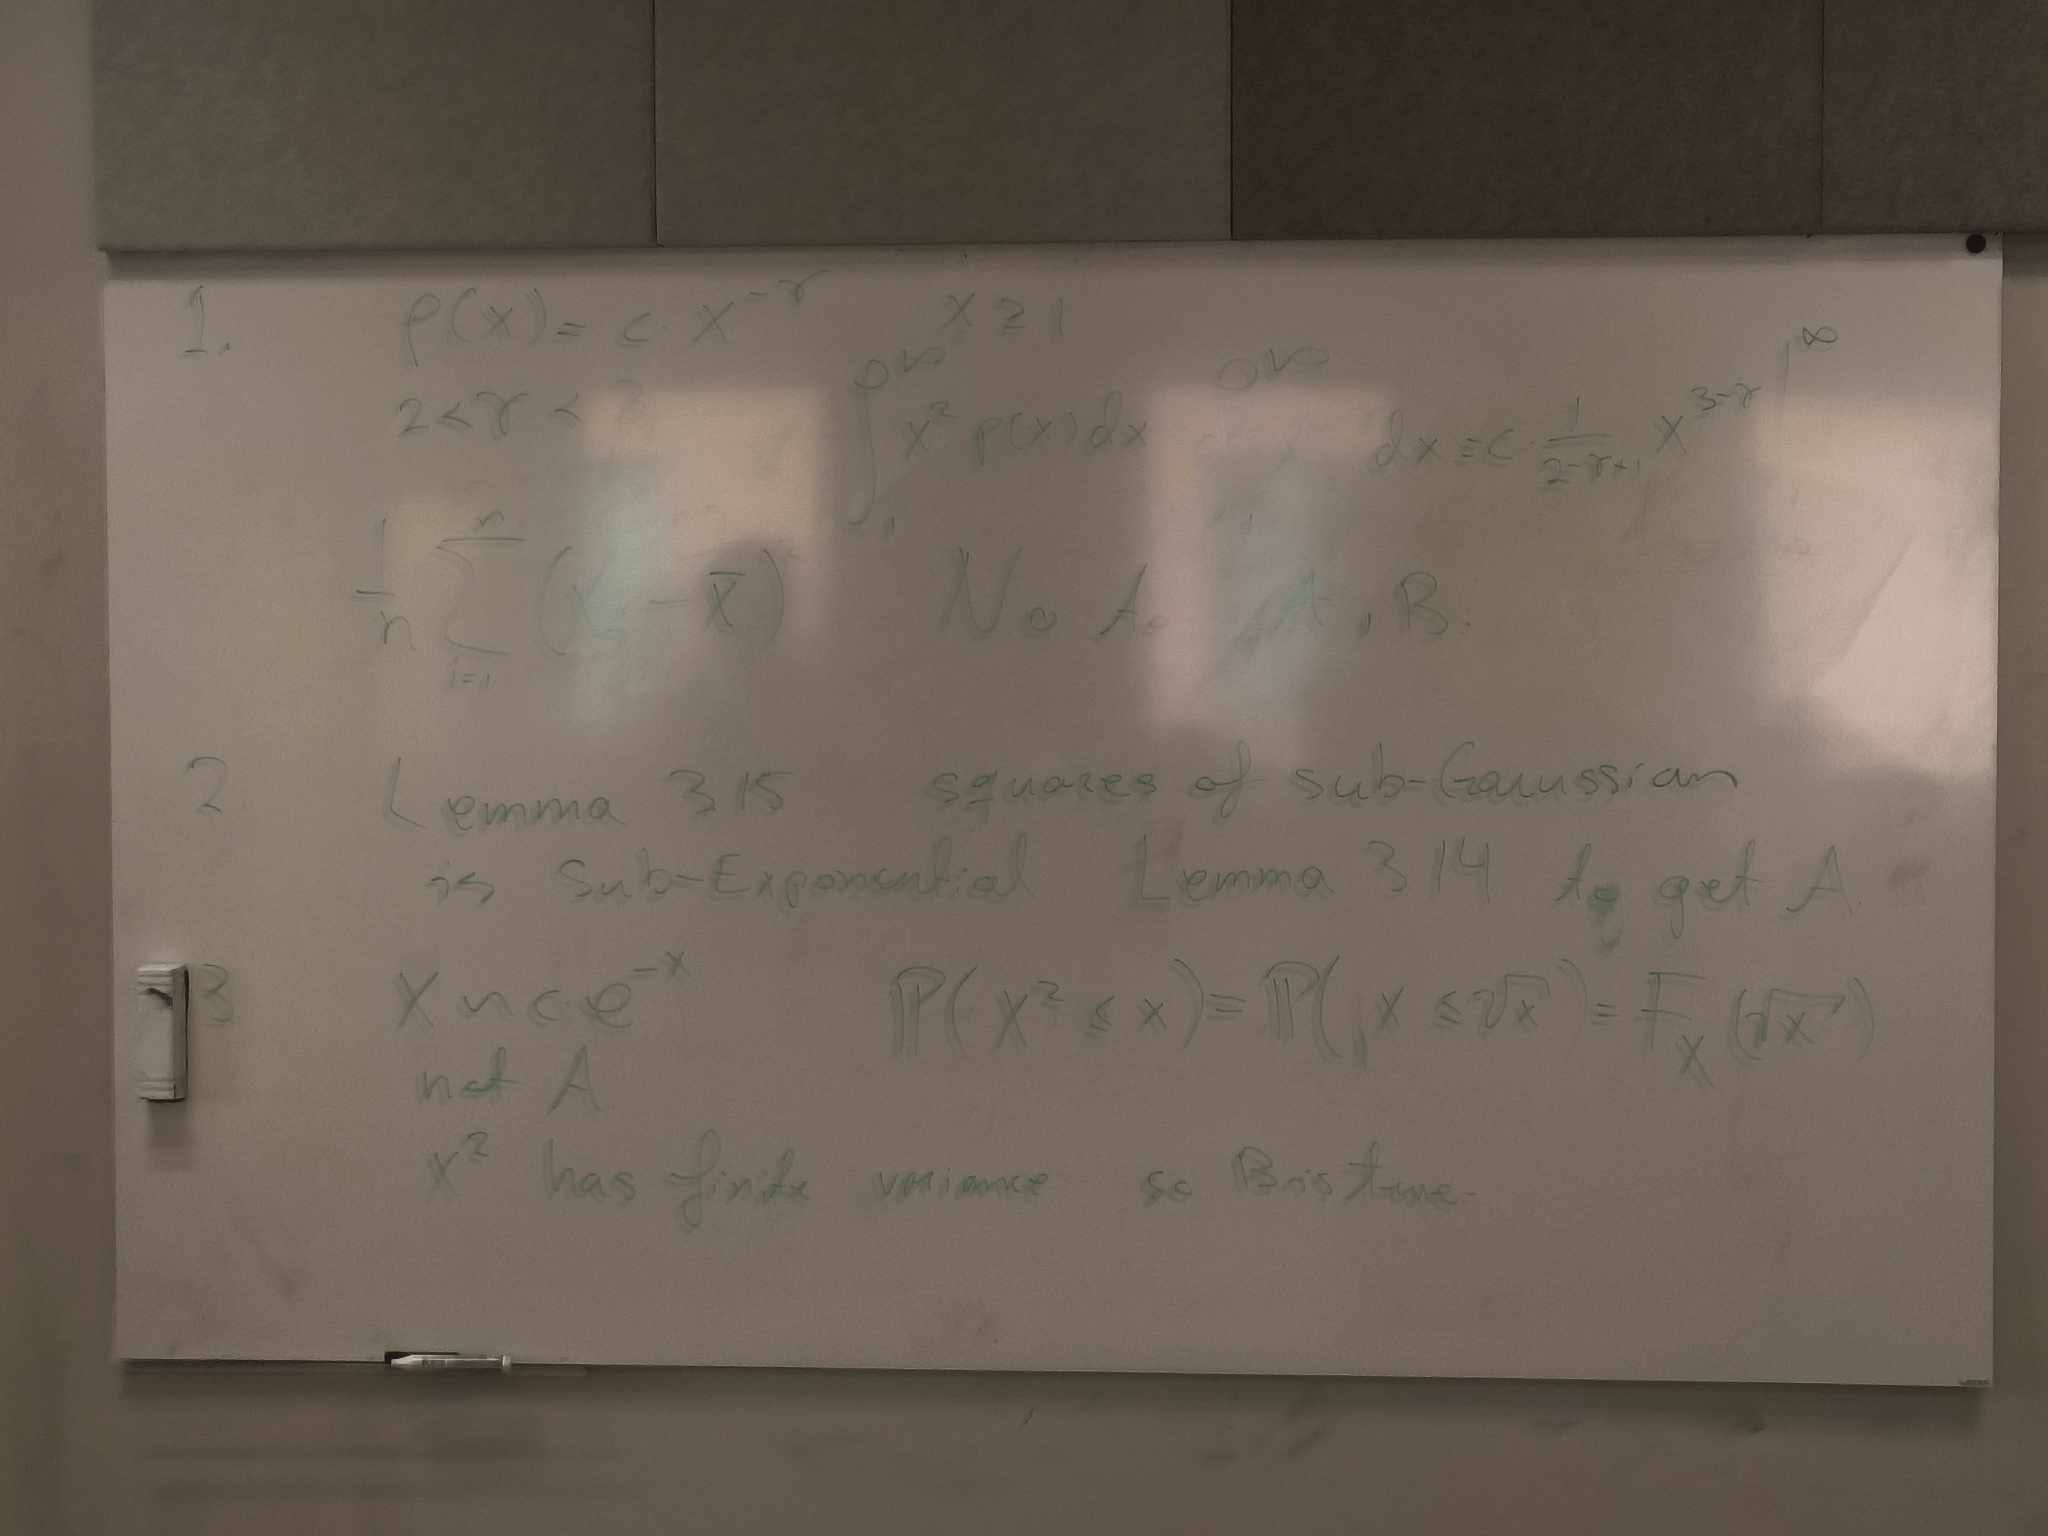 1. p(x) = c · x^{-γ} x ≥ 1
2 < γ < 3 ∫_1^∞ x² p(x) dx dx = c · \frac{1}{2-γ+1} x^{3-γ} |^∞
\frac{1}{n} \sum_{i=1}^{n} (x_i - \bar{x})² No A. , B.
2 Lemma 3.15 squares of sub-Gaussian
is Sub-Exponential Lemma 3.14 to get A.
3 X ~ c·e^{-x} ℙ(X² ≤ x) = ℙ(X ≤ √x) = F_X(√x)
not A
x² has finite variance so B is true.